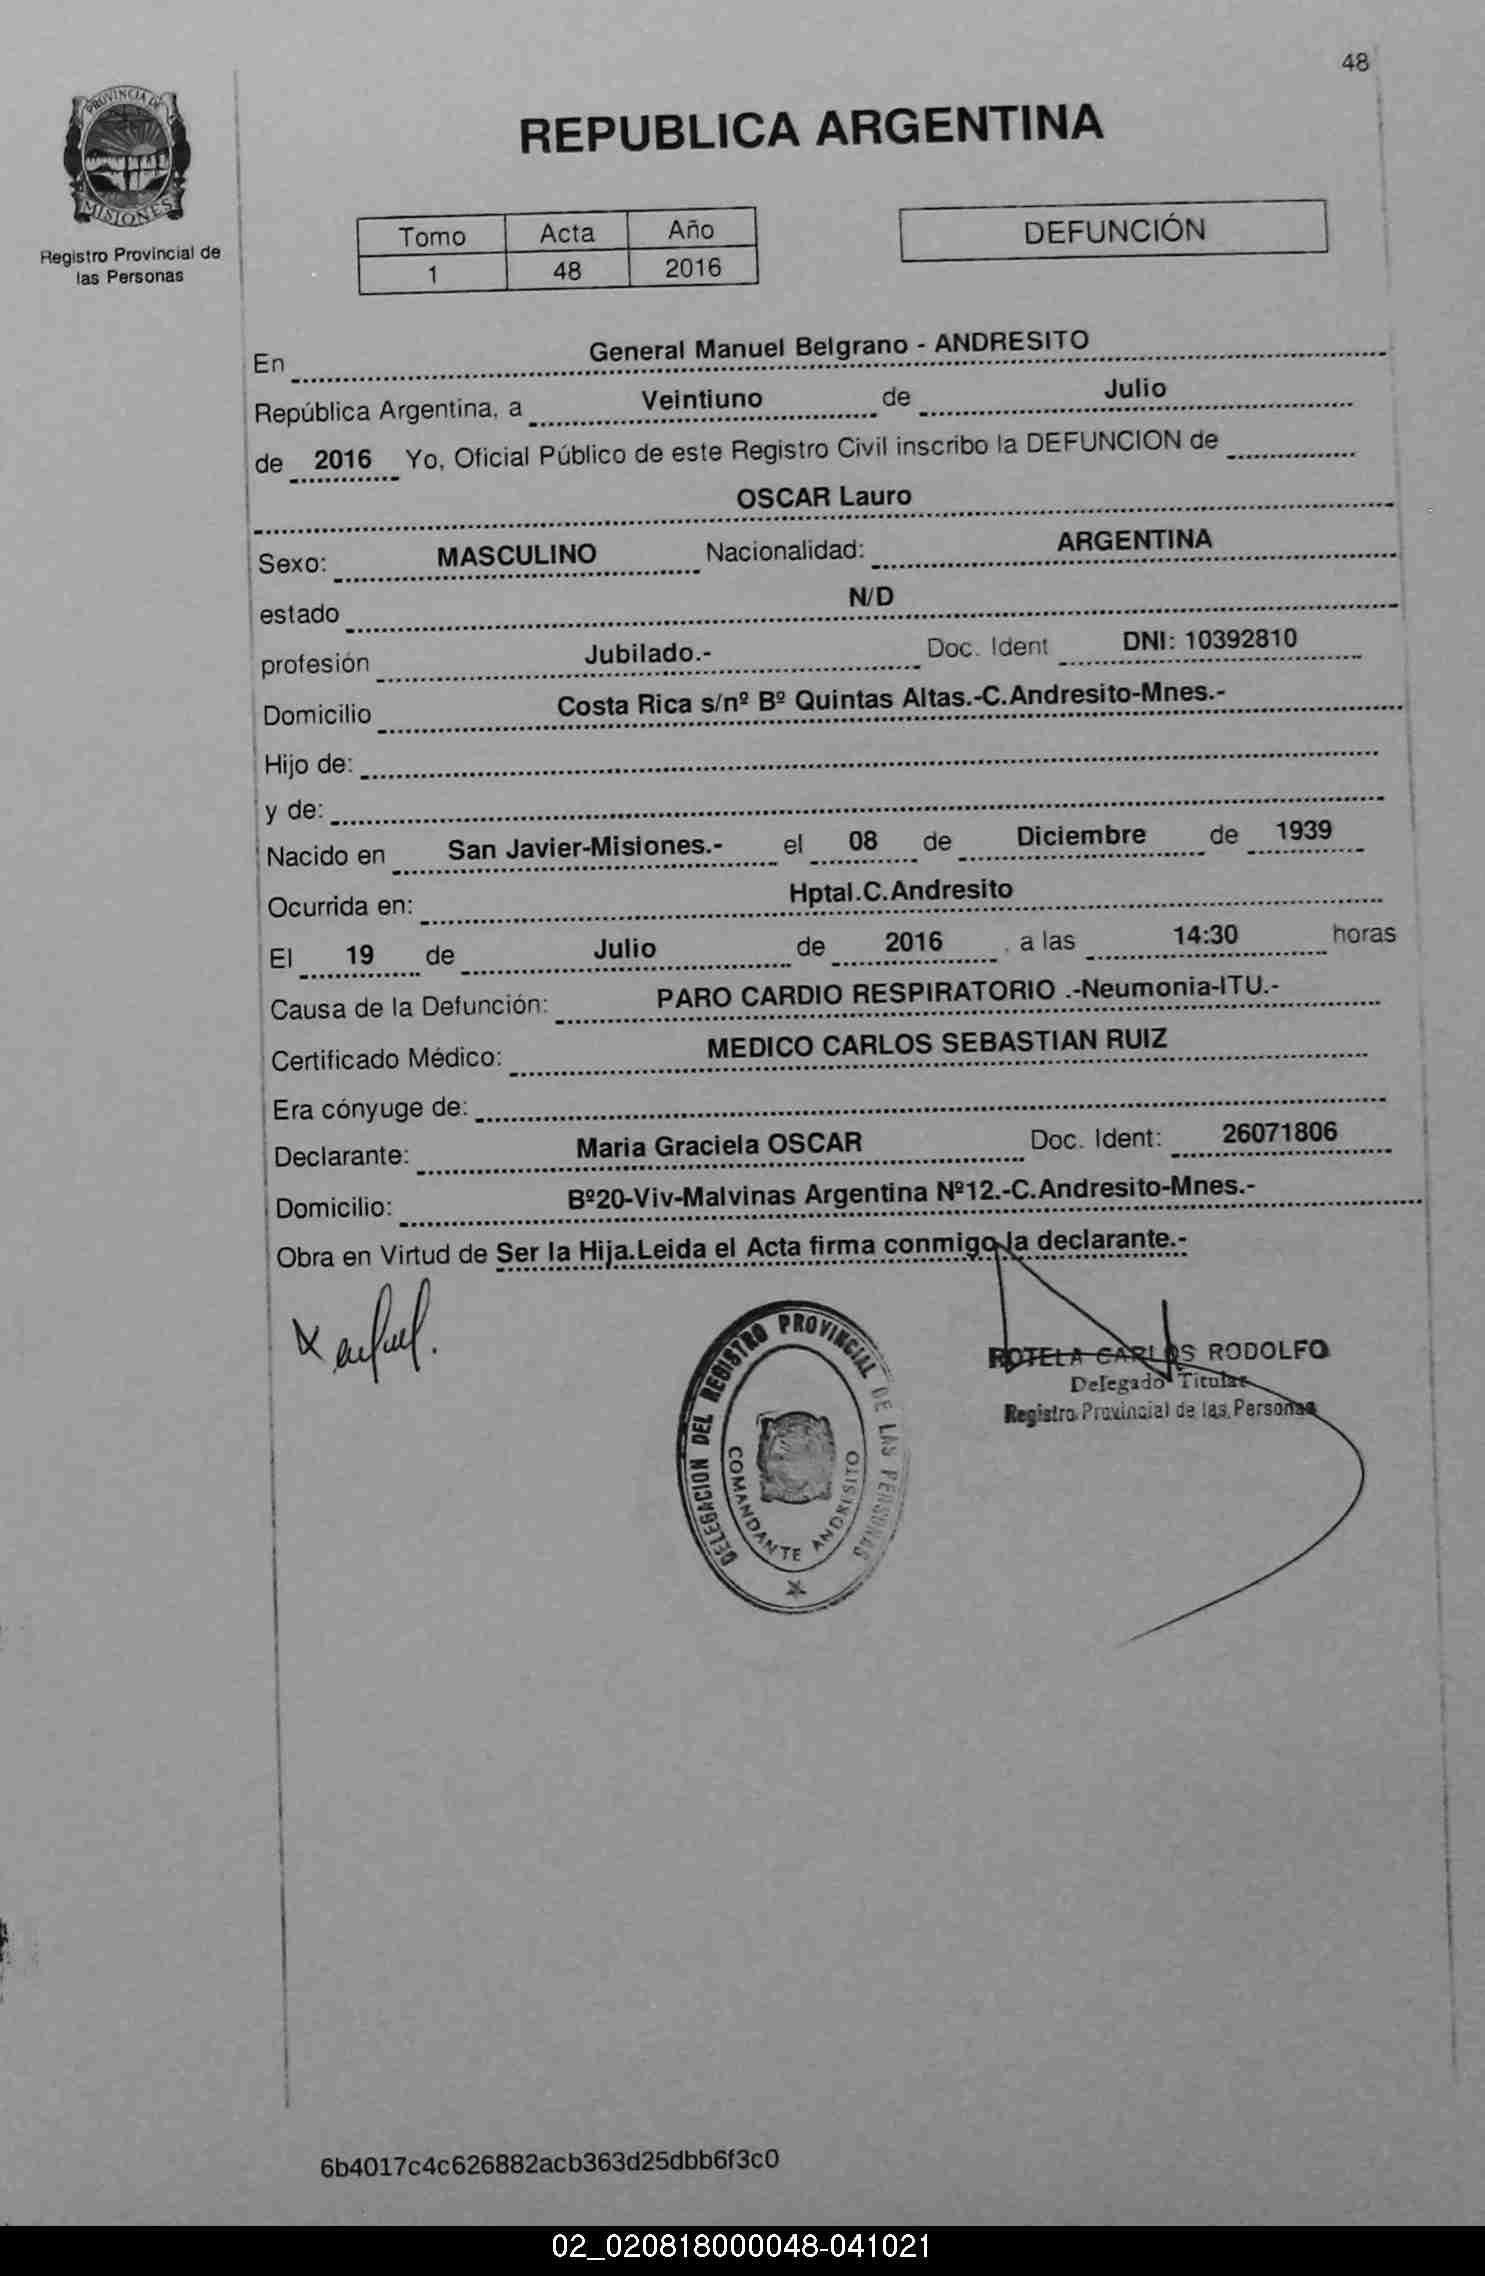 48
PROVINCIA DE
MISIONES
Registro Provincial de
las Personas
REPUBLICA ARGENTINA
Tomo Acta Año
1 48 2016
DEFUNCIÓN
En General Manuel Belgrano - ANDRESITO
República Argentina, a Veintiuno de Julio
de 2016 Yo, Oficial Público de este Registro Civil inscribo la DEFUNCION de
OSCAR Lauro
Sexo: MASCULINO Nacionalidad: ARGENTINA
estado N/D
profesión Jubilado.- Doc. Ident DNI: 10392810
Domicilio Costa Rica s/nº Bº Quintas Altas.-C.Andresito-Mnes.-
Hijo de:
y de:
Nacido en San Javier-Misiones.- el 08 de Diciembre de 1939
Ocurrida en: Hptal.C.Andresito
El 19 de Julio de 2016 , a las 14:30 horas
Causa de la Defunción: PARO CARDIO RESPIRATORIO .-Neumonia-ITU.-
Certificado Médico: MEDICO CARLOS SEBASTIAN RUIZ
Era cónyuge de:
Declarante: Maria Graciela OSCAR Doc. Ident: 26071806
Domicilio: Bº20-Viv-Malvinas Argentina Nº12.-C.Andresito-Mnes.-
Obra en Virtud de Ser la Hija.Leida el Acta firma conmigo la declarante.-
DELEGACION DEL REGISTRO PROVINCIAL DE LAS PERSONAS
COMANDANTE ANDRESITO
ROTELA CARLOS RODOLFO
Delegado Titular
Registro Provincial de las Personas
6b4017c4c626882acb363d25dbb6f3c0
02_020818000048-041021